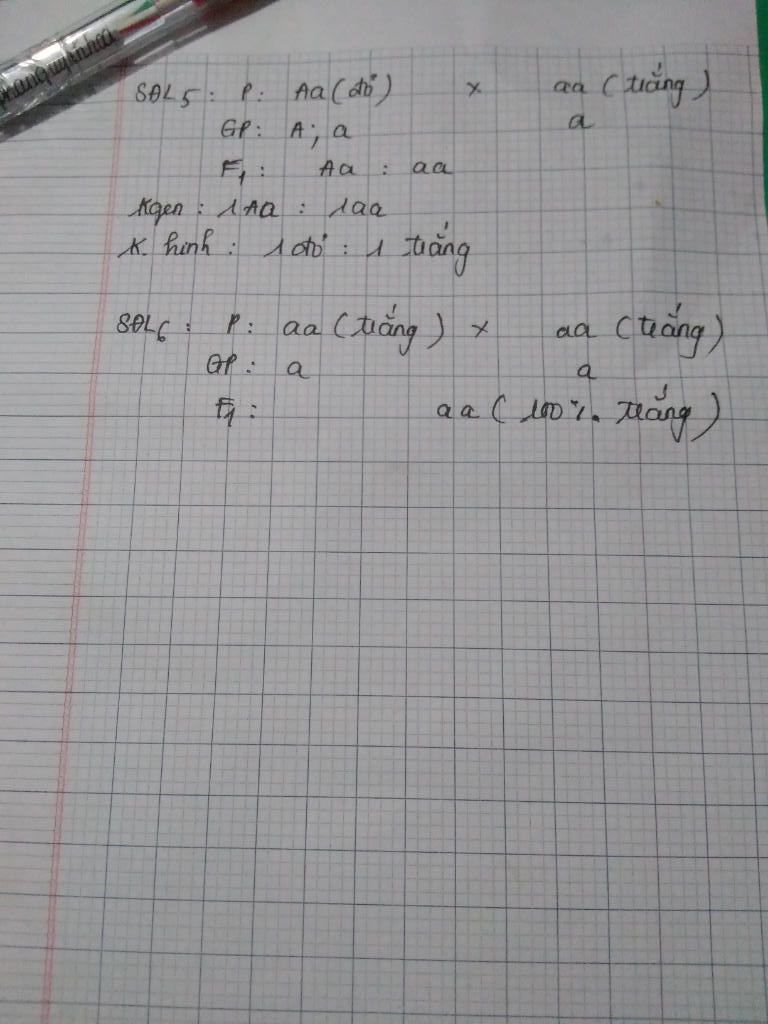 phanquynhhoa
SĐL5 : P : Aa (đỏ) x aa (trắng)
GP : A ; a a
F1 : Aa : aa
Kgen : 1Aa : 1aa
K. hình : 1 đỏ : 1 trắng
SĐL6 : P : aa (trắng) x aa (trắng)
GP : a a
F1 : aa ( 100 %. trắng )